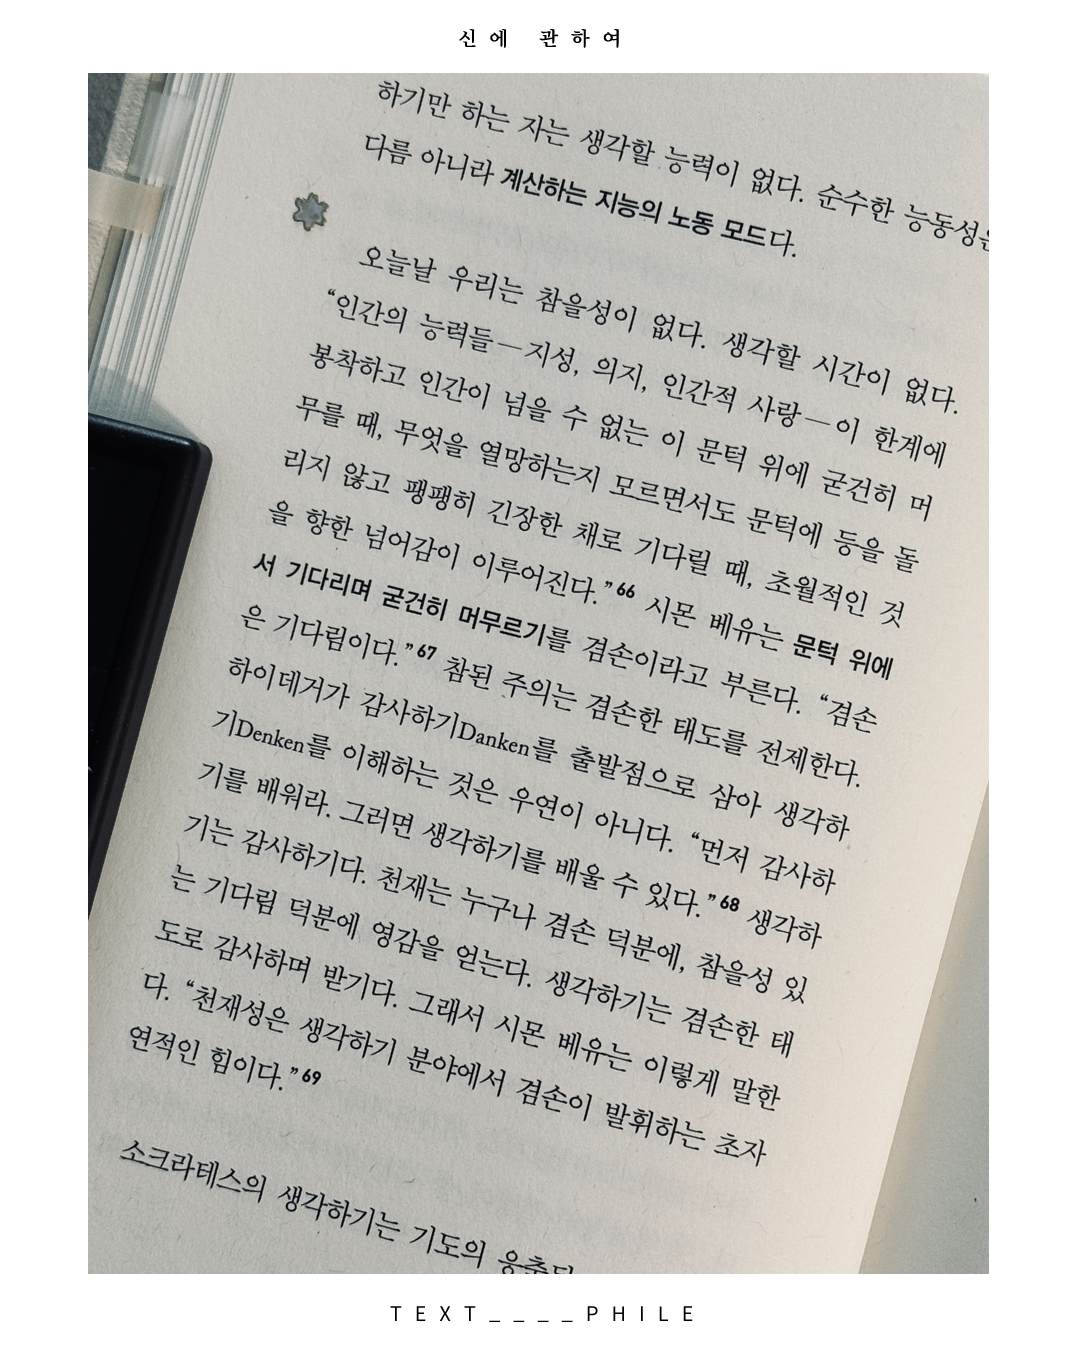 신에 관하여
하기만 하는 자는 생각할 능력이 없다. 순수한 능동성은
다름 아니라 계산하는 지능의 노동 모드다.
오늘날 우리는 참을성이 없다. 생각할 시간이 없다.
“인간의 능력들—지성, 의지, 인간적 사랑—이 한계에
봉착하고 인간이 넘을 수 없는 이 문턱 위에 굳건히 머
무를 때, 무엇을 열망하는지 모르면서도 문턱에 등을 돌
리지 않고 팽팽히 긴장한 채로 기다릴 때, 초월적인 것
을 향한 넘어감이 이루어진다.”66 시몬 베유는 문턱 위에
서 기다리며 굳건히 머무르기를 겸손이라고 부른다. “겸손
은 기다림이다.”67 참된 주의는 겸손한 태도를 전제한다.
하이데거가 감사하기Danken를 출발점으로 삼아 생각하
기Denken를 이해하는 것은 우연이 아니다. “먼저 감사하
기를 배워라. 그러면 생각하기를 배울 수 있다.”68 생각하
기는 감사하기다. 천재는 누구나 겸손 덕분에, 참을성 있
는 기다림 덕분에 영감을 얻는다. 생각하기는 겸손한 태
도로 감사하며 받기다. 그래서 시몬 베유는 이렇게 말한
다. “천재성은 생각하기 분야에서 겸손이 발휘하는 초자
연적인 힘이다.”69
소크라테스의 생각하기는 기도의
TEXT____PHILE